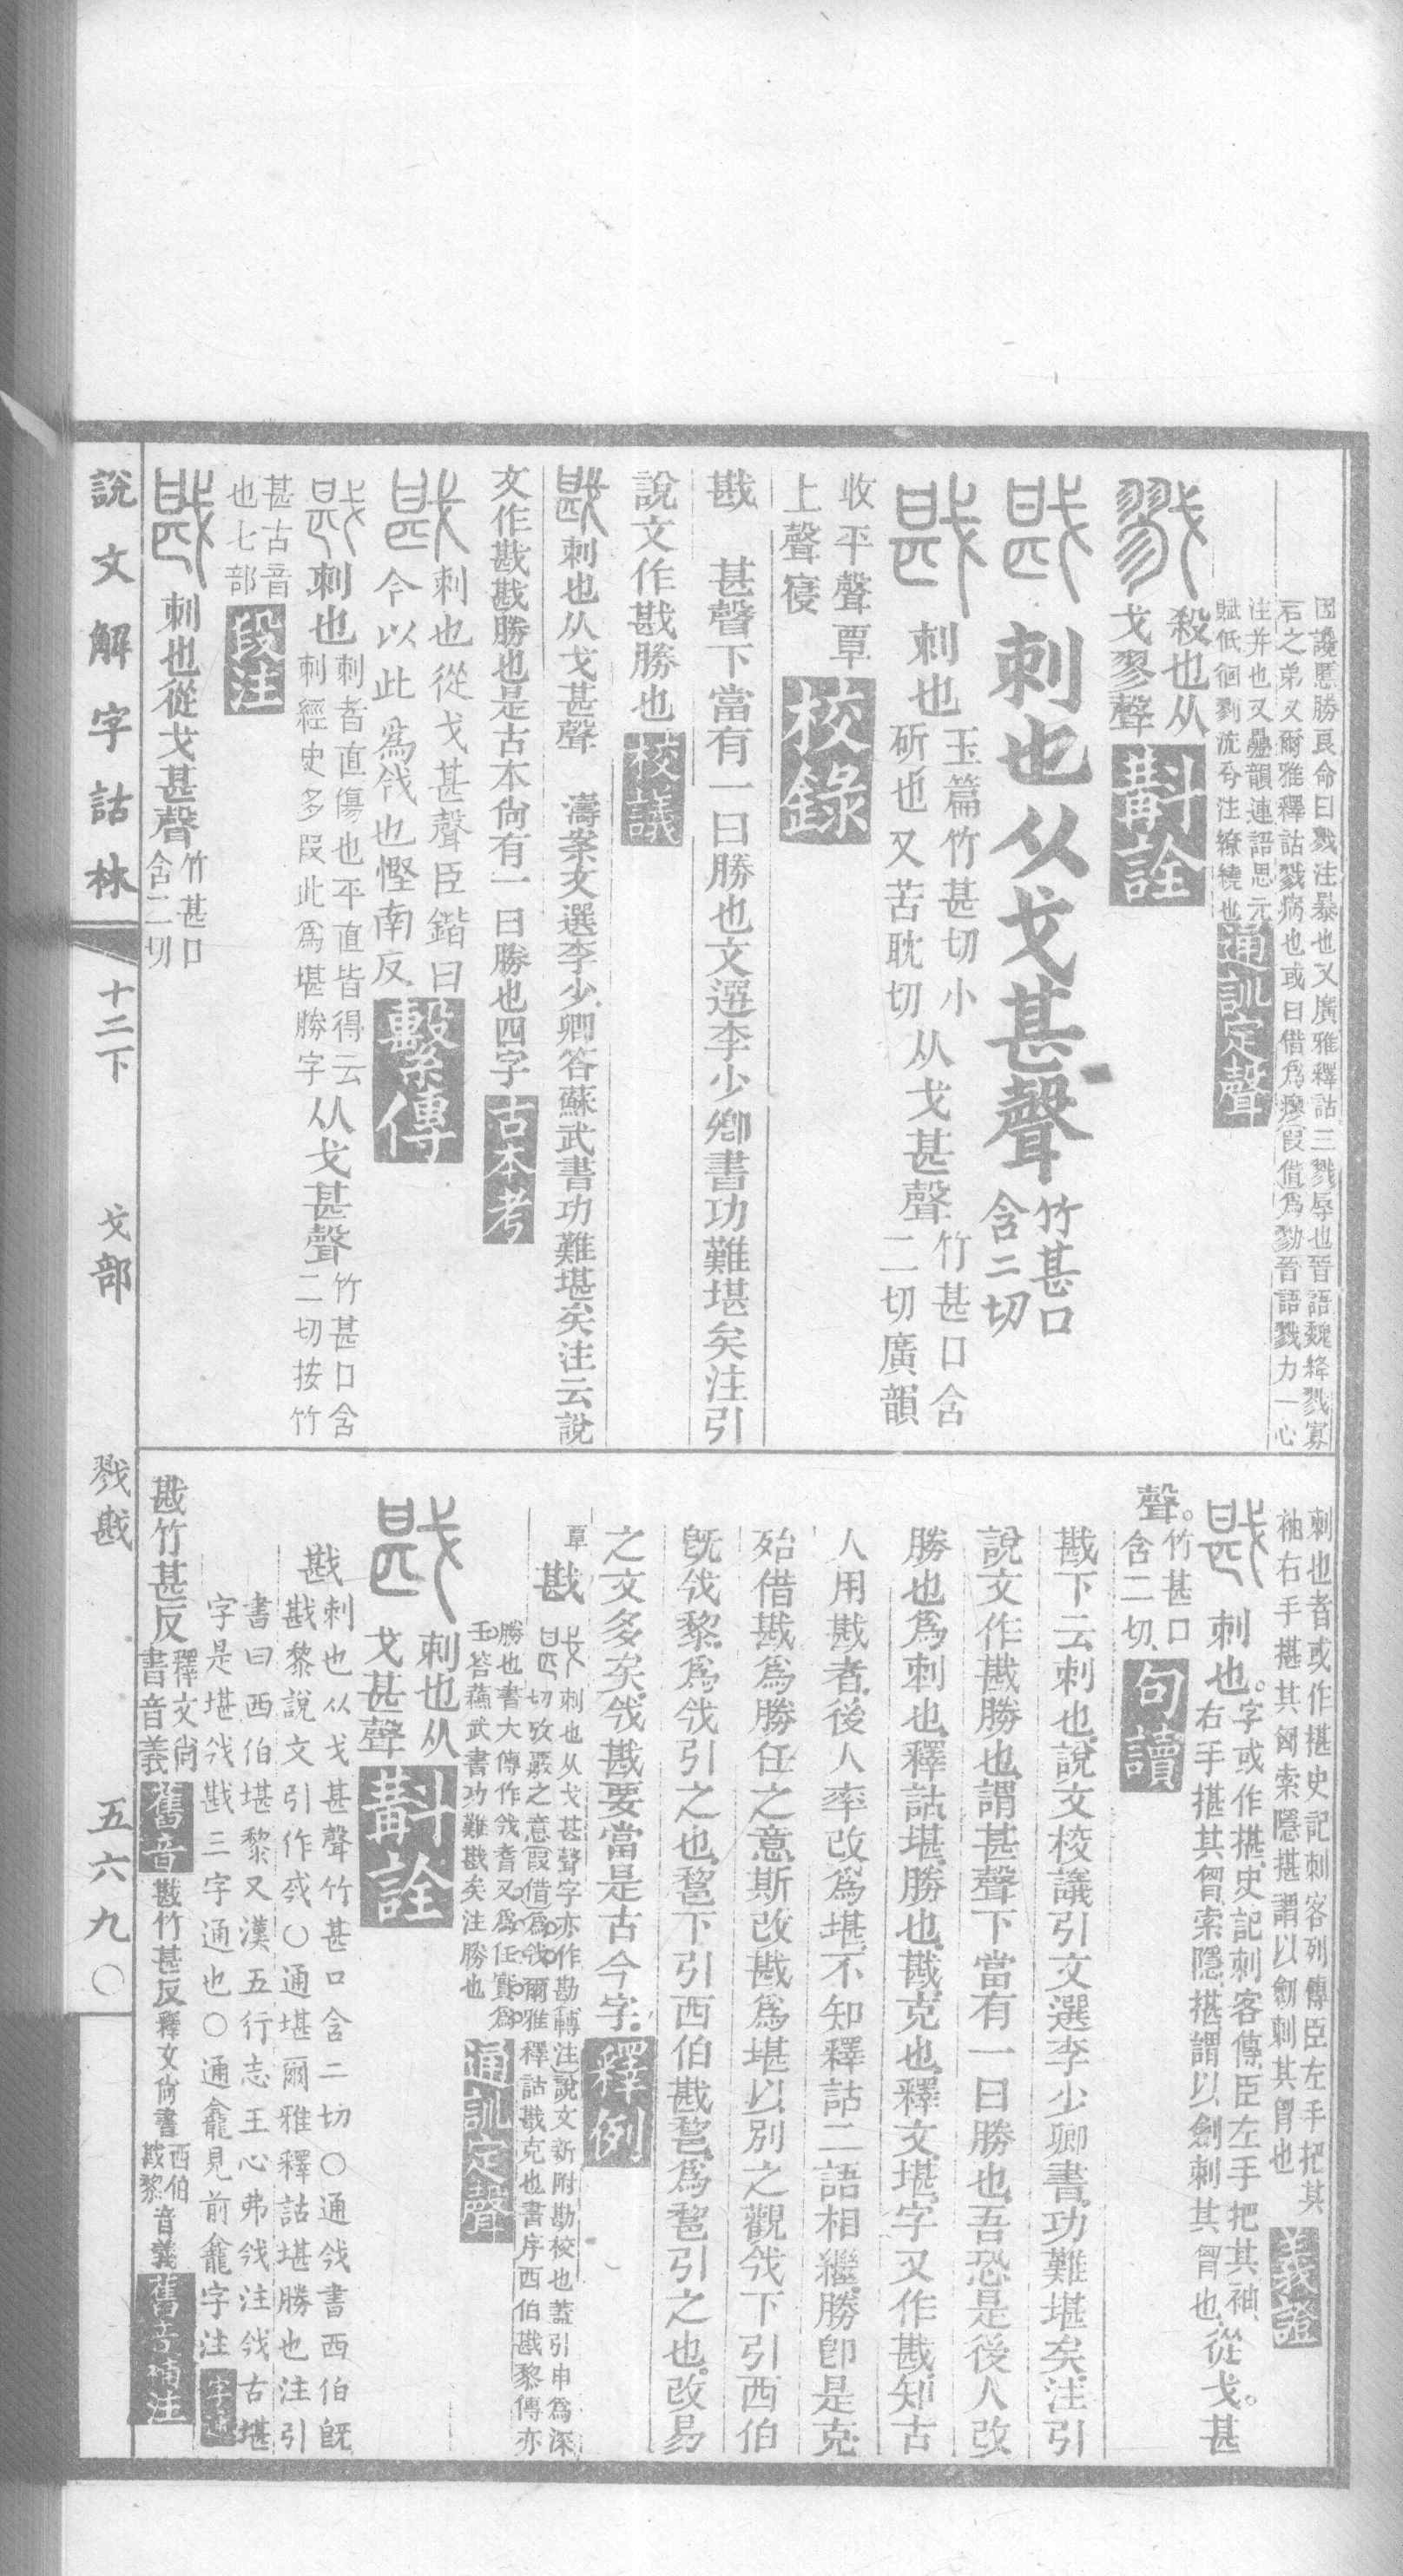 国讒慝勝良命曰戮注暴也又廣雅釋詁三戮辱也晉語魏絳戮寡
君之弟又爾雅釋詁戮病也或曰借爲瘳叚借爲勠晉語戮力一心
注并也又疊韻連語思元
賦低徊戮流兮注繚繞也
通訓定聲
殺也从
戈翏聲
斠詮
刺也从戈甚聲
竹甚口
含二切
刺也
玉篇竹甚切小
斫也又苦耽切
从戈甚聲
竹甚口含
二切廣韻
收平聲覃
上聲寑
校錄
戡 甚聲下當有一曰勝也文選李少卿書功難堪矣注引
說文作戡勝也
校議
刺也从戈甚聲 濤案文選李少卿答蘇武書功難堪矣注云說
文作戡戡勝也是古本尙有一曰勝也四字
古本考
刺也從戈甚聲臣鍇曰
今以此爲伐也慳南反
繫傳
刺也
刺者直傷也平直皆得云
刺經史多叚此爲堪勝字
从戈甚聲
竹甚口含
二切按竹
甚古音
也七部
段注
刺也從戈甚聲
竹甚口
含二切
刺也者或作揕史記刺客列傳臣左手把其
袖右手揕其匈索隱揕謂以劍刺其胷也
義證
刺也。
字或作揕史記刺客傳臣左手把其袖
右手揕其胷索隱揕謂以劍刺其胷也
從戈。甚
聲。
竹甚口
含二切
句讀
戡下云刺也說文校議引文選李少卿書功難堪矣注引
說文作戡勝也謂甚聲下當有一曰勝也吾恐是後人改
勝也爲刺也釋詁堪勝也戡克也釋文堪字又作戡知古
人用戡者後人率改爲堪不知釋詁二語相繼勝卽是克
殆借戡爲勝任之意斯改戡爲堪以別之觀𢦟下引西伯
旣𢦟黎爲𢦟引之也𨛫下引西伯戡𨛫爲𨛫引之也改易
之文多矣𢦟戡要當是古今字
釋例
覃
戡
刺也从戈甚聲字亦作勘轉注說文新附勘校也蓋引申爲深
切攷覈之意叚借爲𢦟爾雅釋詁戡克也書序西伯戡黎傳亦
勝也書大傳作𢦟耆又爲任實爲
壬答蘇武書功難戡矣注勝也
通訓定聲
刺也从
戈甚聲
斠詮
戡
刺也从戈甚聲竹甚口含二切〇通𢦟書西伯旣
戡黎說文引作𢦟〇通堪爾雅釋詁堪勝也注引
書曰西伯堪黎又漢五行志王心弗𢦟注𢦟古堪
字是堪𢦟戡三字通也〇通龕見前龕字注
字通
戡竹甚反
釋文尙
書音義
舊音
戡竹甚反釋文尙書
西伯
戡黎
音義
舊音補注
說文解字詁林
十二下
戈部
戮戡
五六九〇